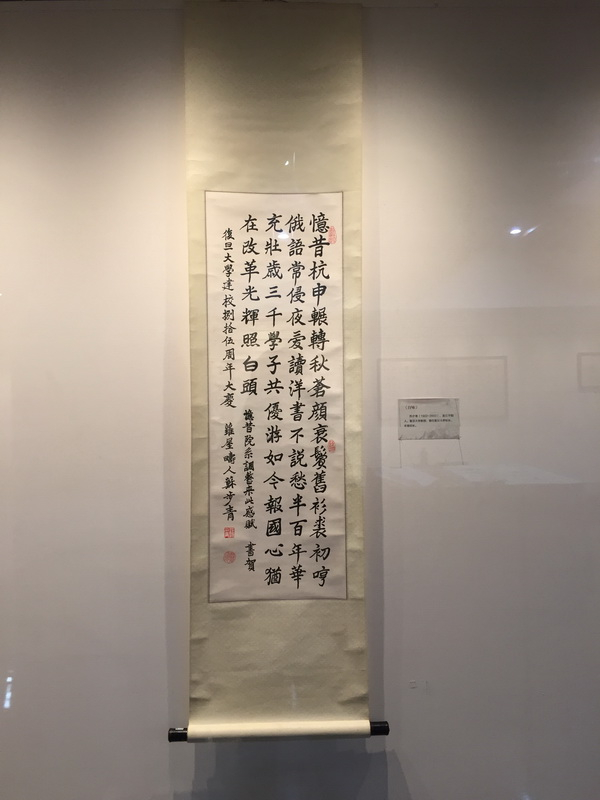 憶昔杭申輾轉秋蒼顏衰鬢舊衫裘初哼
俄語常侵夜爱讀洋書不説愁半百年華
充壯歲三千學子共優游如今報國心猶
在改革光輝照白頭 憶昔院系調整來此感賦 書賀
復旦大學建校捌拾伍周年大慶 蘿屋疇人蘇步青